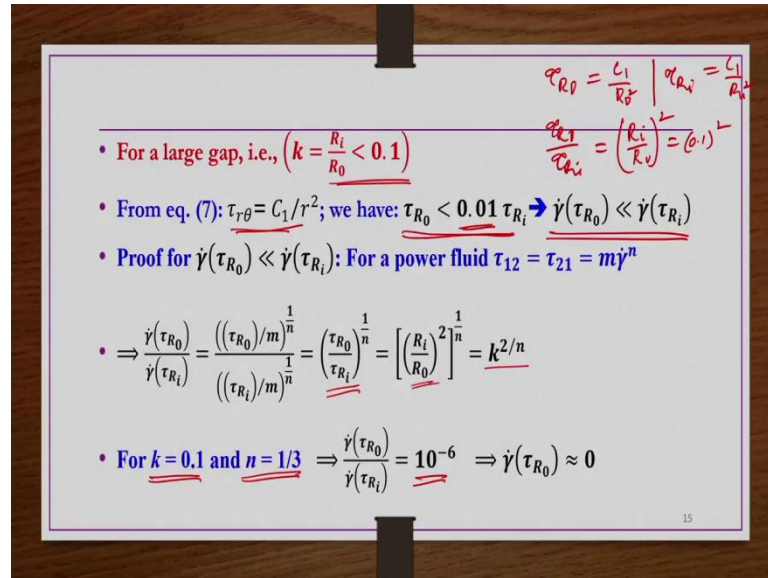 τ_R0 = C1/R0² | τ_Ri = C1/Ri²
τ_R0/τ_Ri = (Ri/R0)² = (0.1)²
• For a large gap, i.e., (k = R_i/R_0 < 0.1)
• From eq. (7): τ_rθ = C_1/r²; we have: τ_R0 < 0.01 τ_Ri ➔ γ̇(τ_R0) ≪ γ̇(τ_Ri)
• Proof for γ̇(τ_R0) ≪ γ̇(τ_Ri): For a power fluid τ_12 = τ_21 = mγ̇^n
• ⇒ γ̇(τ_R0)/γ̇(τ_Ri) = ((τ_R0)/m)^(1/n)/((τ_Ri)/m)^(1/n) = (τ_R0/τ_Ri)^(1/n) = [(R_i/R_0)²]^(1/n) = k^(2/n)
• For k = 0.1 and n = 1/3 ⇒ γ̇(τ_R0)/γ̇(τ_Ri) = 10^−6 ⇒ γ̇(τ_R0) ≈ 0
15